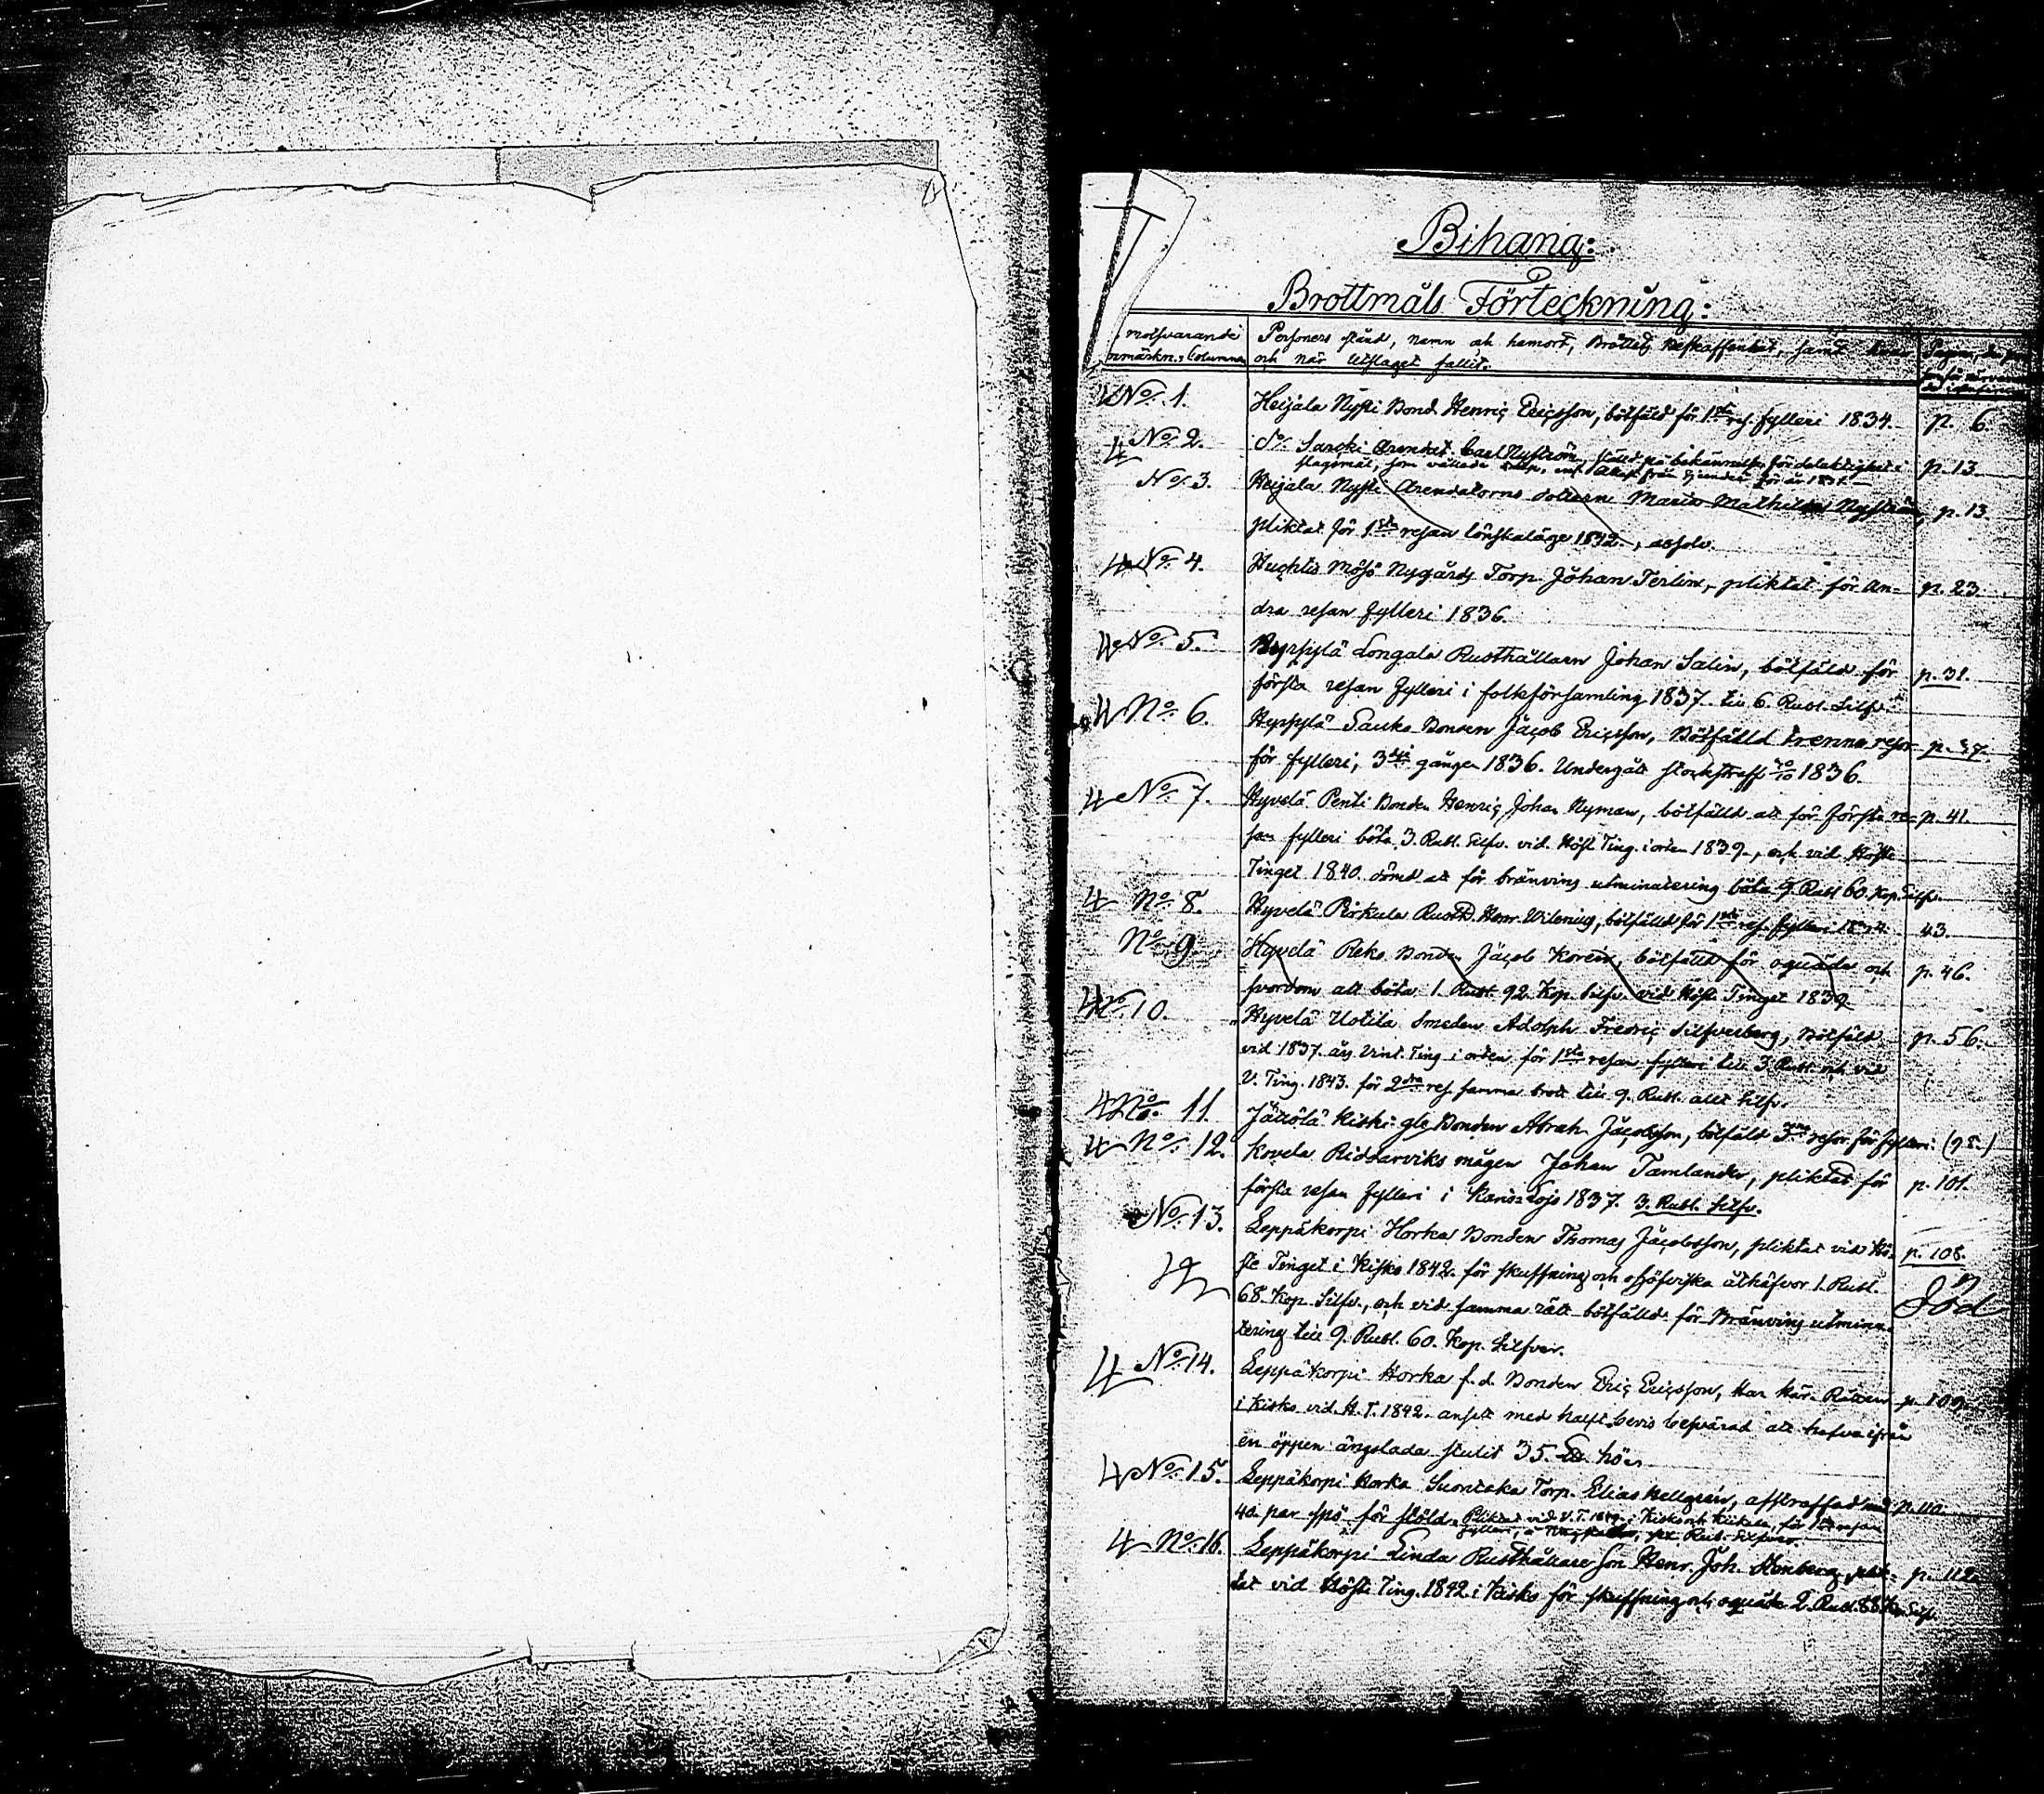 Bihang:
Brottmåls Förteckning:
motsvarande Personers stånd, namn och hemort, Brottets Beskaffenhet, samt
anmärkn.s Columnen och när Utslaget fallit.
No. 1. Heijala Nysti Bond. Henric Ericsson, bötfäld för 1sta res. fylleri 1834. p. 6.
No. 2. Do. Sarcki Arendat. Carl Nyström, på bekännelse för delaktighet i p. 13.
slagsmål, som vållade från för år 1831.
No. 3. Heijala Nysti Arendatorns dottern Maria Mathilda Nyström, p. 13.
pliktat för 1sta resan lönskaläge 1842., absolv.
No. 4. Huchtis Mösö Nygårds Torp. Johan Terlin, pliktat för An- p. 23.
dra resan fylleri 1836.
No. 5. Hyrsylä Longala Rusthållarn Johan Salin, bötfäld för p. 31.
första resan fylleri i folkförsamling 1837. till 6. Rubl. Silfv.
No. 6. Hyrsylä Sauko Bonden Jacob Ericsson, Bötfälld trenne resor p. 37.
för fylleri, 3dje gången 1836. Undergått stockstraff 1836.
No. 7. Hyvelä Penti Bonden Henric Johan Nyman, bötfälld att för första re- p. 41.
san fylleri böta 3. Rubl. Silfv. vid Höst Ting. i orten 1839., och vid Höste
Tinget 1840. dömd att för bränvins utminutering böta 9. Rubl 60. Kop. Silfv.
No. 8. Hyvelä Pirkula Rusth. Henr. Wilenius, bötfälld för 1sta res. fylleri 1834. 43.
No. 9. Hyvelä Reko Bonden Jacob Koren, bötfälld för oquäda och p. 46.
svordom att böta 1. Rubl. 92. Kop. Silfv. vid Höst Tinget 1839.
No. 10. Hyvelä Uotila Smeden Adolph Fredric Silfverberg, Bötfäld p. 56.
vid 1837. års Vint. Ting i orten för 1sta resan fylleri till 3. Rubl. och vid
V. Ting. 1843. för 2dra res. samma brott till 9. Rubl. allt Silfv.
No. 11. Jättölä Kiski gle Bonden Abrah. Jacobsson, bötfäld 3ne resor för fylleri. (98.)
No. 12. Kovela Riddarviks mågen Johan Tamlander, pliktat för p. 101.
första resan fylleri i Karislojo 1837. 3. Rubl. Silfv.
No. 13. Leppäkorpi Horka Bonden Thomas Jacobsson, pliktat vid Hö- p. 108.
ste Tinget i Kisko 1842. för skuffning och åthäfvor 1. Rubl. Död
68. Kop. Silfv., och vid samma rätt bötfälld för Bränvins utminu-
tering till 9. Rubl. 60. Kop. Silfver.
No. 14. Leppäkorpi Horka f.d. Bonden Eric Ericsson, Har Här. Rätten p. 109.
i Kisko vid H.T. 1842. ansett med halft bevis besvärad att hafva ifrån
en öppen ängslada stulit 35. hö.
No. 15. Leppäkorpi Horka Suontaka Torp. Elias Hellgren, afstraffad med p. 110.
40. par spö för stöld. Pliktat vid V.T. i Kisko och Kikala, för resan
fylleri, Rub. Silfver.
No. 16. Leppäkorpi Linda Rusthållare son Henr. Joh. Stenberg, plik- p. 112.
tat vid Höste Ting. 1842. i Kisko för skuffning och oquäda 2. Rubl. 88 Kop. Silfv.